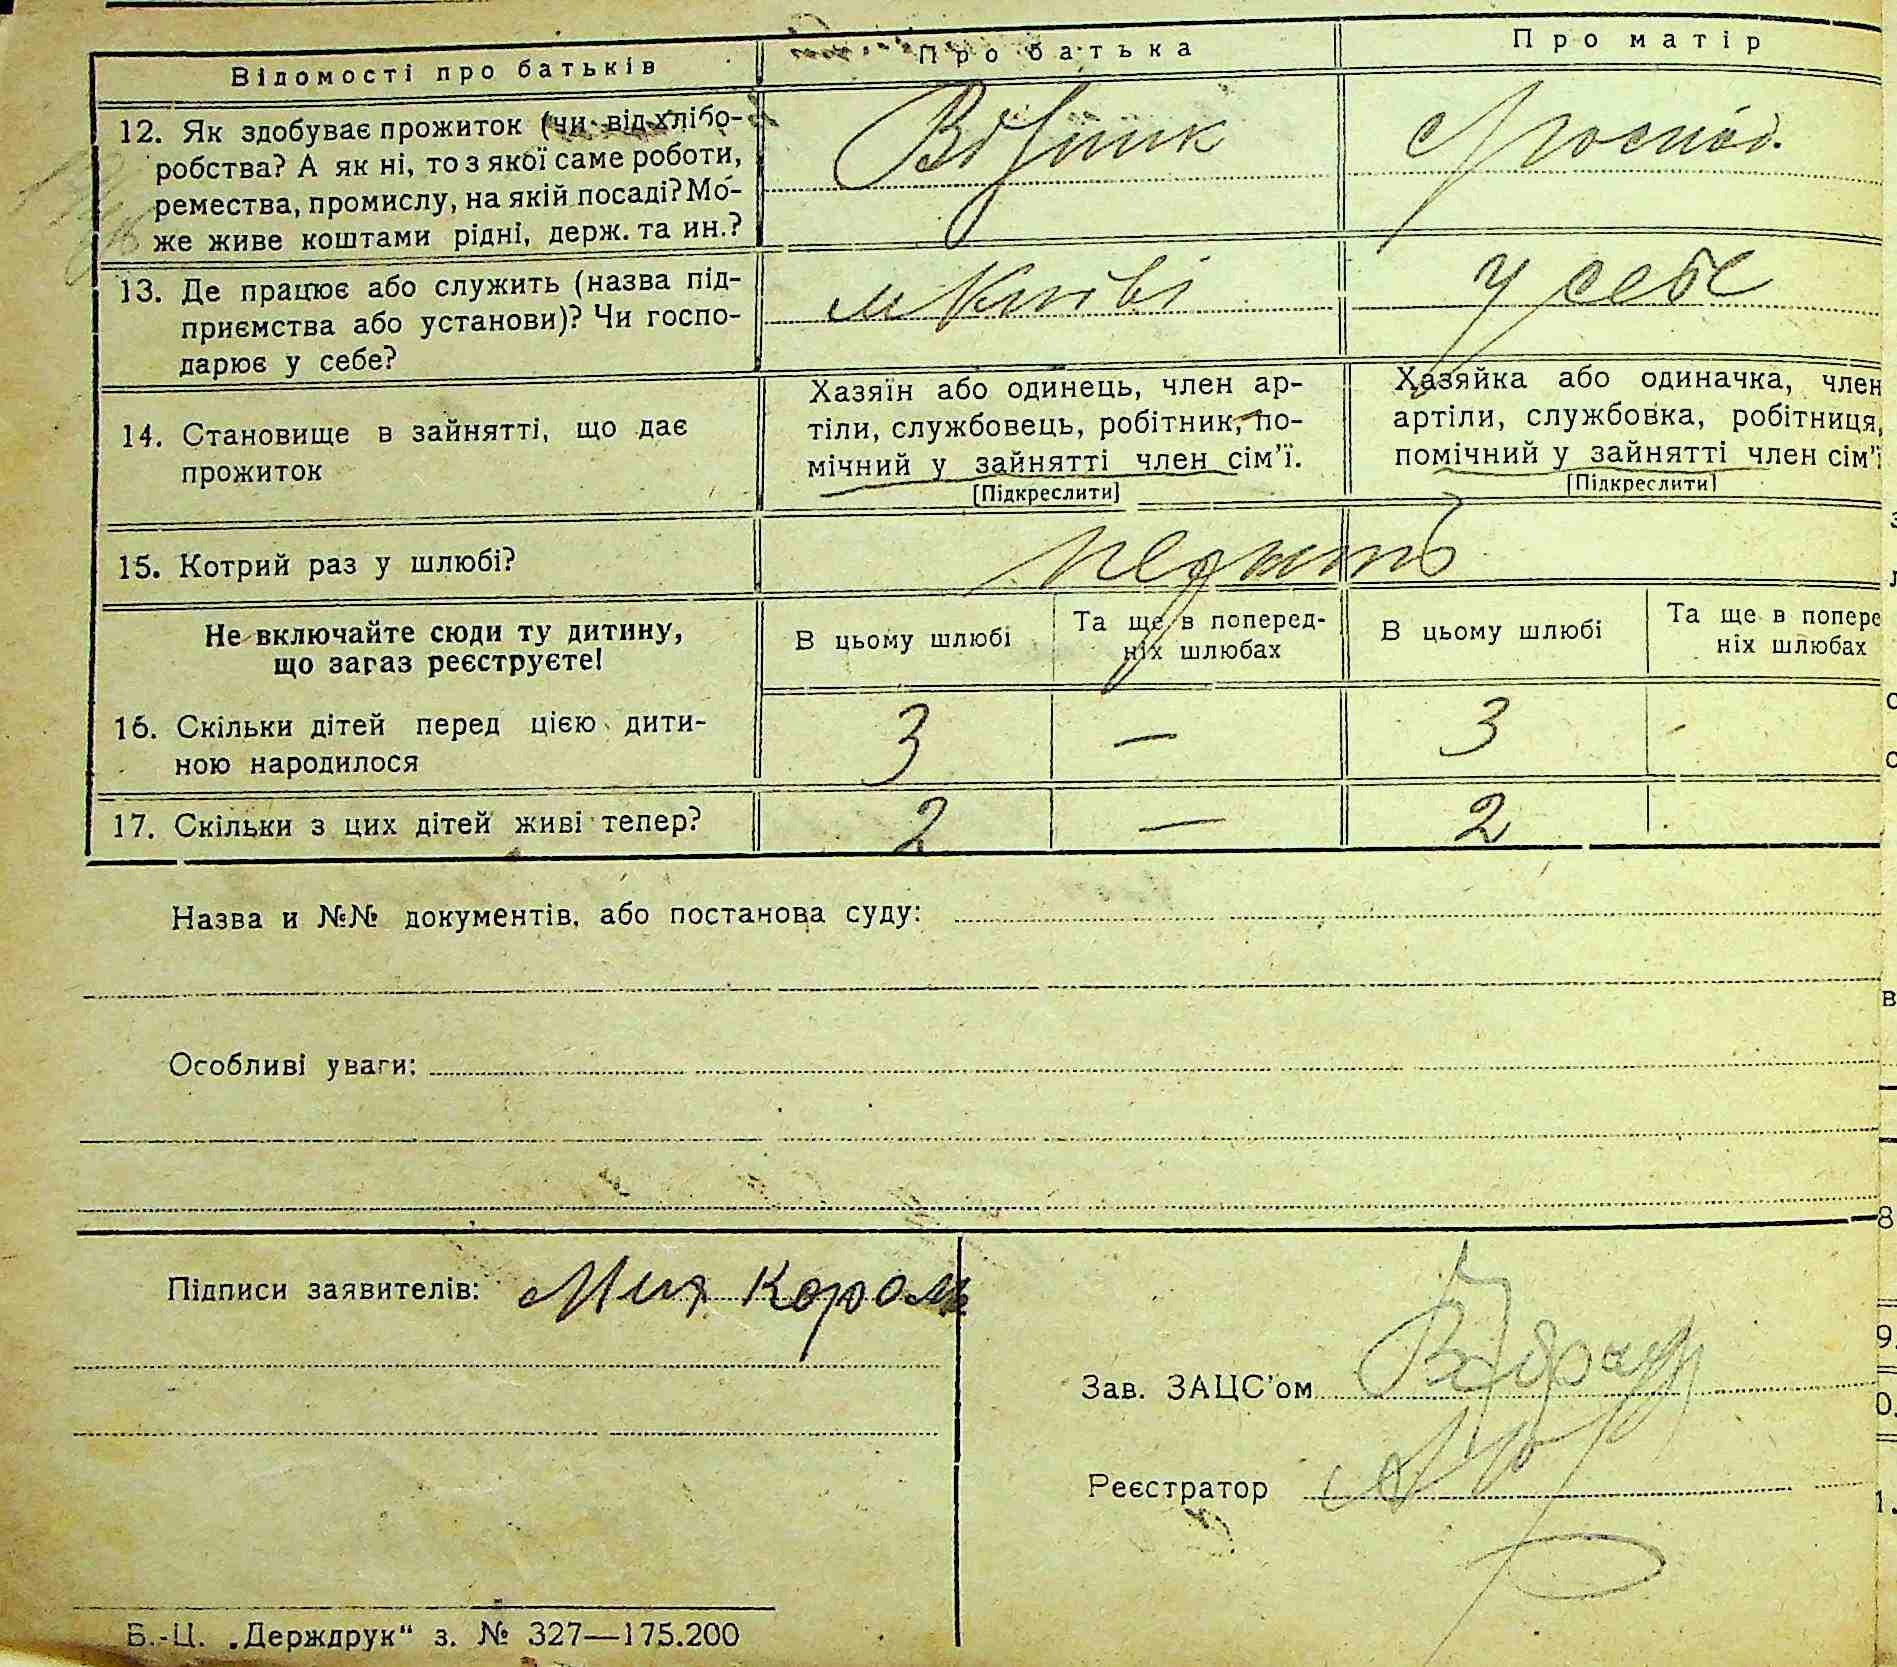 Відомості про батьків
Про батька
Про матір
12. Як здобуває прожиток (чи від хлібо-
робства? А як ні, то з якої саме роботи,
ремества, промислу, на якій посаді? Мо-
же живе коштами рідні, держ. та ин.?
Візник
господ.
13. Де працює або служить (назва під-
приємства або установи)? Чи госпо-
дарює у себе?
м Київі
у себе
14. Становище в зайнятті, що дає
прожиток
Хазяїн або одинець, член ар-
тіли, службовець, робітник, по-
мічний у зайнятті член сім'ї.
[Підкреслити]
Хазяйка або одиначка, член
артіли, службовка, робітниця,
помічний у зайнятті член сім'ї
[Підкреслити]
15. Котрий раз у шлюбі?
Не включайте сюди ту дитину,
що зараз реєструєте!
В цьому шлюбі
Та ще в поперед-
ніх шлюбах
В цьому шлюбі
Та ще в попере
ніх шлюбах
16. Скільки дітей перед цією дити-
ною народилося
3 — 3
17. Скільки з цих дітей живі тепер?
2 — 2
Назва и №№ документів, або постанова суду:
Особливі уваги:
Підписи заявителів: Мих Король
Зав. ЗАЦС'ом
Реєстратор
Б.-Ц. „Держдрук" з. № 327—175.200